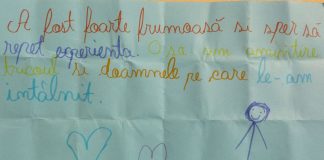 A fost foarte frumoasă si sper să
repet experienta. O să am amintire
tricoul si doamnele pe care le-am
intâlnit.